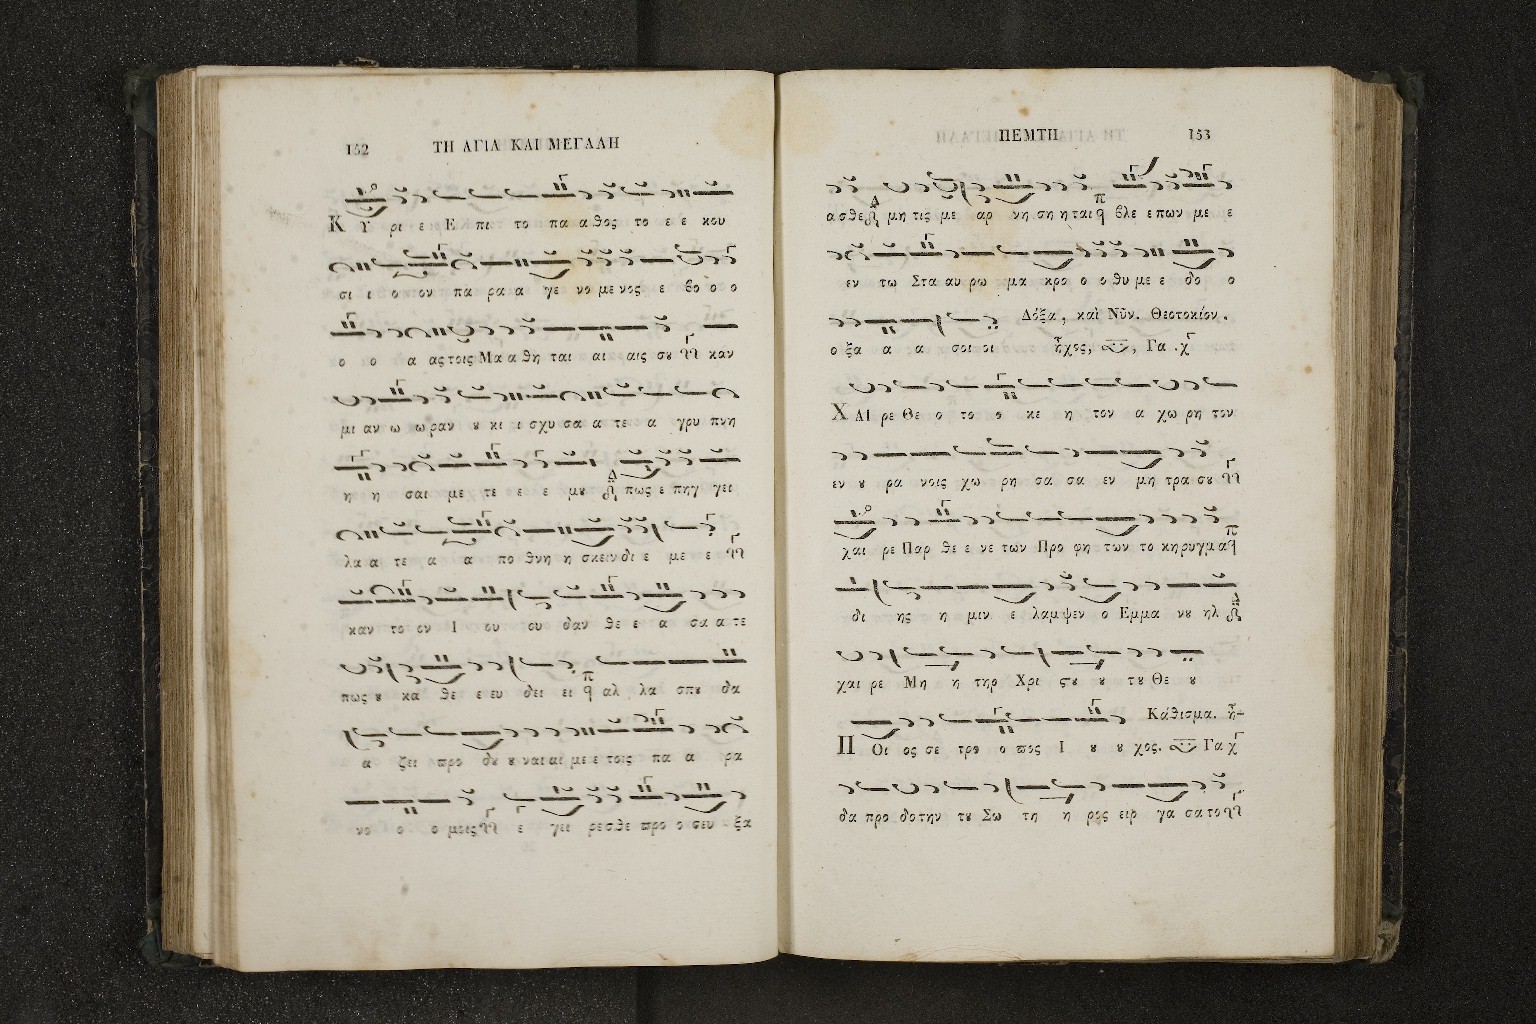 152 ΤΗ ΑΓΙΑ ΚΑΙ ΜΕΓΑΛΗ
Κ Υ ρι ε Ε πι το πα α θος το ε ε κου
σι ι ο ον πα ρα α γε νο με νος ε βο ο ο
ο ο α ας τοις Μα α θη ται αι αις σου καν
μι αν ω ω ραν ου κι ι σχυ σα α τε α γρυ πνη
η η σαι με τε ε ε μου πως ε πηγ γει
λα α τε α α πο θνη η σκειν δι ε με ε
καν το ον Ι ου ου δαν θε ε α σα α τε
πως ου κα θε ε ευ δει ει αλ λα σπου δα
α ζει προ δου ου ναι αι με ε τοις πα α ρα
νο ο ο μοις ε γει ρεσθε προ ο σευ ξα
ΠΕΜΤΗ 153
ασθε μη τις με αρ νη ση η ται βλε επων με ε
εν τω Στα αυ ρω μα κρο ο ο θυ με ε δο ο
ο ξα α α σοι οι
Δόξα, καὶ Νῦν. Θεοτοκίον.
ἦχος, Γα
Χ ΑΙ ρε Θε ο το ο κε η τον α χω ρη τον
εν ου ρα νοις χω ρη σα σα εν μη τρα σου
χαι ρε Παρ θε ε νε των Προ φη των το κηρυγμα
δι ης η μιν ε λαμψεν ο Εμμα νου ηλ
χαι ρε Μη η τηρ Χρι ϛου ου του Θε ου
Κάθισμα. ἦ-
Π Οι ος σε τρο ο πος Ι ου ου χος. Γα
δα προ δοτην του Σω τη η ρος ειρ γα σατο